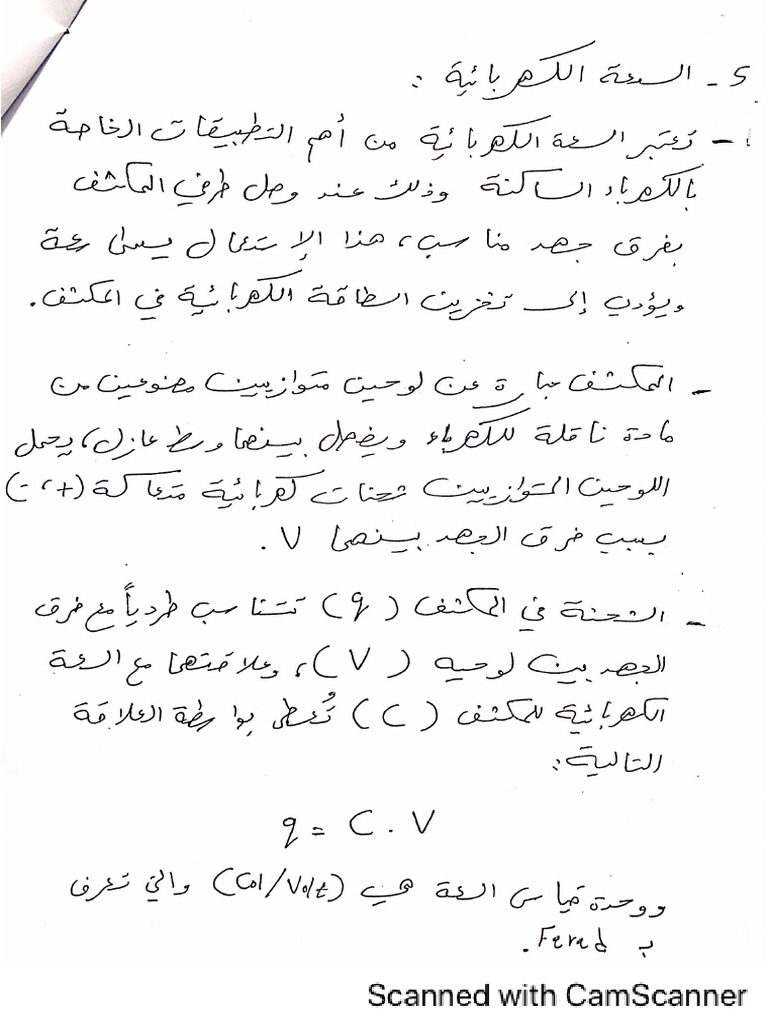 5 - السعة الكهربائية :
- تعتبر السعة الكهربائية من أهم التطبيقات الخاصة
بالكهرباء الساكنة وذلك عند وصل طرفي المكثف
بفرق جهد مناسب، هذا الإستعمال يسمى سعة
ويؤدي إلى تخزين الطاقة الكهربائية في المكثف.
- المكثف عبارة عن لوحين متوازيين مصنوعين من
مادة ناقلة للكهرباء ويفصل بينهما وسط عازل، يحمل
اللوحين المتوازيين شحنات كهربائية متعاكسة (+، -)
بسبب فرق الجهد بينهما V .
- الشحنة في المكثف (q) تتناسب طردياً مع فرق
الجهد بين لوحيه (V)، وعلاقتهما مع السعة
الكهربائية للمكثف (C) تُعطى بواسطة العلاقة
التالية:
q = C . V
ووحدة قياس السعة هي (Col/Volt) والتي تعرف
بـ Farad.
Scanned with CamScanner